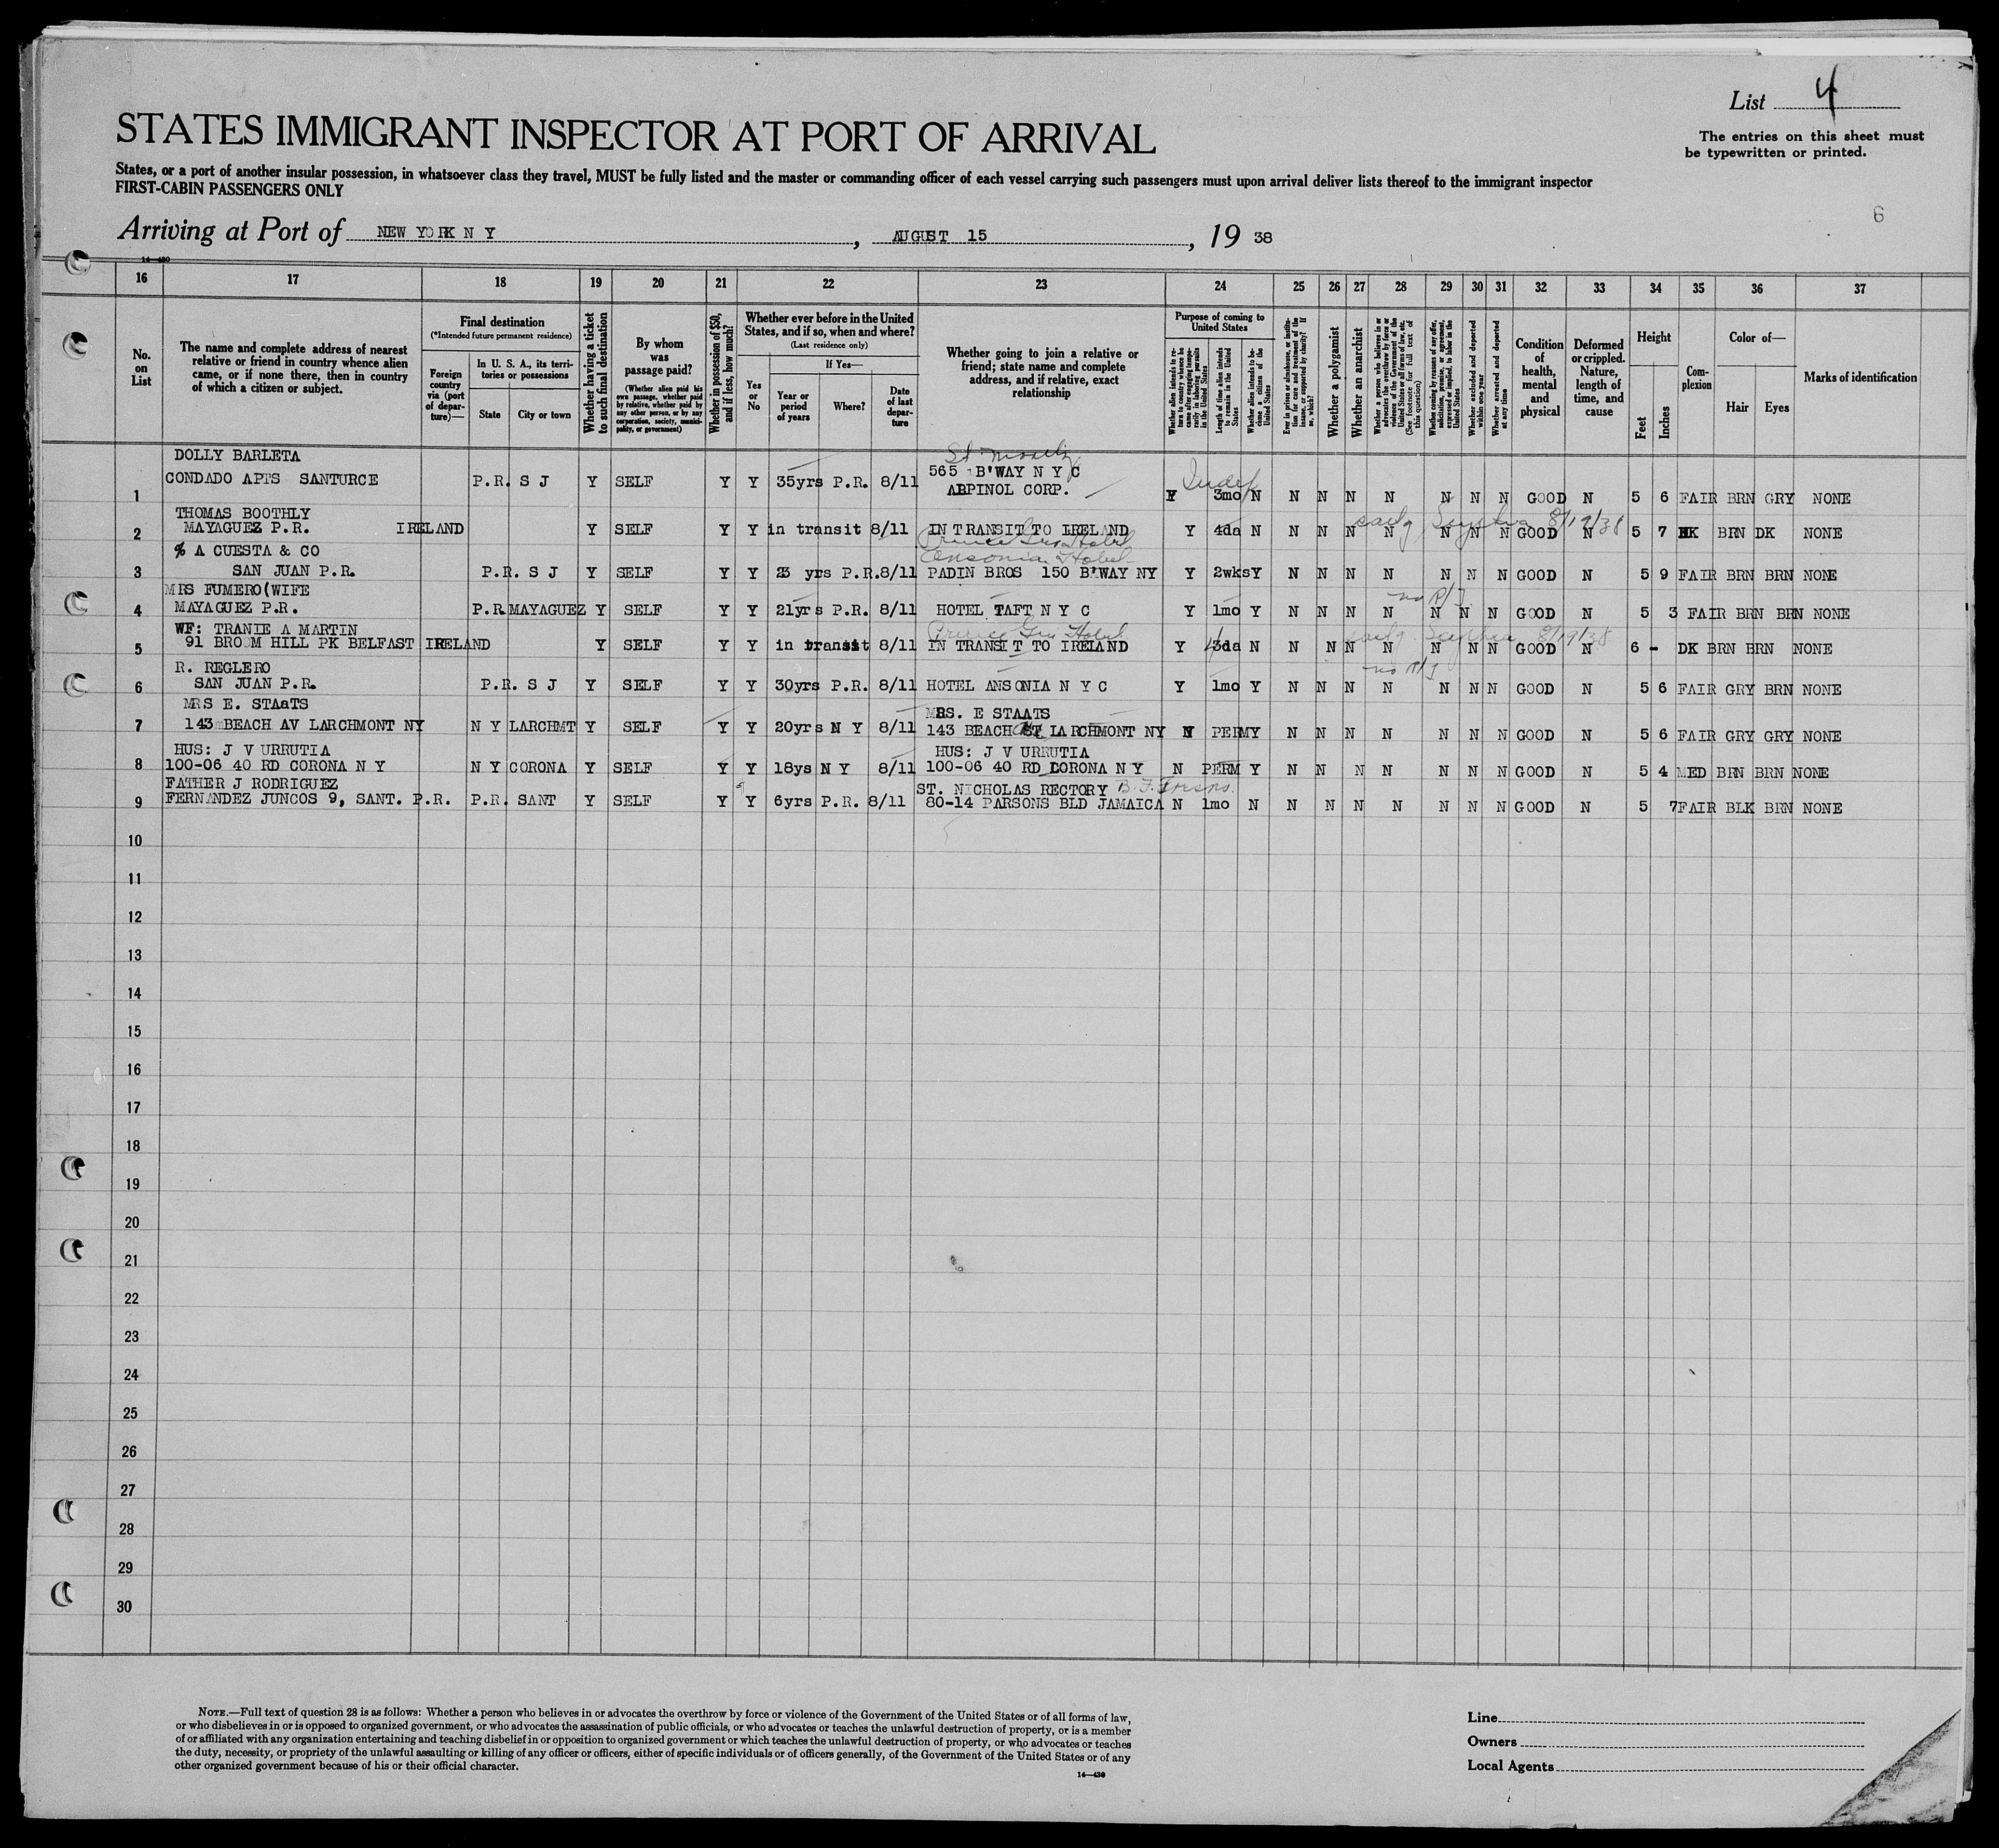 List 4
The entries on this sheet must
be typewritten or printed.
STATES IMMIGRANT INSPECTOR AT PORT OF ARRIVAL
States, or a port of another insular possession, in whatsoever class they travel, MUST be fully listed and the master or commanding officer of each vessel carrying such passengers must upon arrival deliver lists thereof to the immigrant inspector
FIRST-CABIN PASSENGERS ONLY
6
Arriving at Port of NEW YORK N Y, AUGUST 15, 19 38
14—430
16 17 18 19 20 21 22 23 24 25 26 27 28 29 30 31 32 33 34 35 36 37
No. on List
The name and complete address of nearest relative or friend in country whence alien came, or if none there, then in country of which a citizen or subject.
Final destination
(*Intended future permanent residence)
Foreign country via (port of departure)—
In U. S. A., its territories or possessions
State
City or town
Whether having a ticket to such final destination
By whom was passage paid?
(Whether alien paid his own passage, whether paid by relative, whether paid by any other person, or by any corporation, society, municipality, or government)
Whether in possession of $50, and if less, how much?
Whether ever before in the United States, and if so, when and where?
(Last residence only)
Yes or No
If Yes—
Year or period of years
Where?
Date of last departure
Whether going to join a relative or friend; state name and complete address, and if relative, exact relationship
Purpose of coming to United States
Whether alien intends to return to country whence he came after engaging temporarily in laboring pursuits in the United States
Length of time alien intends to remain in the United States
Whether alien intends to become a citizen of the United States
Ever in prison or almshouse, or institution for care and treatment of the insane, or supported by charity? If so, which?
Whether a polygamist
Whether an anarchist
Whether a person who believes in or advocates the overthrow by force or violence of the Government of the United States or all forms of law, etc. (See footnote for full text of this question)
Whether coming by reason of any offer, solicitation, promise, or agreement, expressed or implied, to labor in the United States
Whether excluded and deported within one year
Whether arrested and deported at any time
Condition of health, mental and physical
Deformed or crippled. Nature, length of time, and cause
Height
Feet
Inches
Complexion
Color of—
Hair
Eyes
Marks of identification
DOLLY BARLETA St Moritz
1 CONDADO APTS SANTURCE P.R. S J Y SELF Y Y 35yrs P.R. 8/11 565 B'WAY N Y C
ABPINOL CORP. Y 3mo N N N N N N N N GOOD N 5 6 FAIR BRN GRY NONE
Indef
THOMAS BOOTHLY
2 MAYAGUEZ P.R. IRELAND Y SELF Y Y in transit 8/11 IN TRANSIT TO IRELAND Y 4da N N N N N N N N GOOD N 5 7 DK BRN DK NONE
Prince Geo Hotel
8/19/38
% A CUESTA & CO Ansonia Hotel
3 SAN JUAN P.R. P.R. S J Y SELF Y Y 23 yrs P.R. 8/11 PADIN BROS 150 B'WAY NY Y 2wks Y N N N N N N N GOOD N 5 9 FAIR BRN BRN NONE
MRS FUMERO(WIFE
4 MAYAGUEZ P.R. P.R MAYAGUEZ Y SELF Y Y 21yrs P.R. 8/11 HOTEL TAFT N Y C Y 1mo Y N N N N N N N GOOD N 5 3 FAIR BRN BRN NONE
WF: TRANIE A MARTIN Prince Geo Hotel
5 91 BROOM HILL PK BELFAST IRELAND Y SELF Y Y in transit 8/11 IN TRANSIT TO IRELAND Y 3da N N N N N N N N GOOD N 6 - DK BRN BRN NONE
8/19/38
R. REGLERO
6 SAN JUAN P.R. P.R. S J Y SELF Y Y 30yrs P.R. 8/11 HOTEL ANSONIA N Y C Y 1mo Y N N N N N N N GOOD N 5 6 FAIR GRY BRN NONE
MRS E. STAaTS MRS. E STAATS
7 143 BEACH AV LARCHMONT NY N Y LARCHMT Y SELF Y Y 20yrs N Y 8/11 143 BEACH ST LARCHMONT NY N PERM Y N N N N N N N GOOD N 5 6 FAIR GRY GRY NONE
HUS: J V URRUTIA HUS: J V URRUTIA
8 100-06 40 RD CORONA N Y N Y CORONA Y SELF Y Y 18ys N Y 8/11 100-06 40 RD CORONA N Y N PERM Y N N N N N N N GOOD N 5 4 MED BRN BRN NONE
FATHER J RODRIGUEZ ST. NICHOLAS RECTORY
9 FERNANDEZ JUNCOS 9, SANT. P.R. P.R. SANT Y SELF Y Y 6yrs P.R. 8/11 80-14 PARSONS BLD JAMAICA N 1mo N N N N N N N N GOOD N 5 7 FAIR BLK BRN NONE
10
11
12
13
14
15
16
17
18
19
20
21
22
23
24
25
26
27
28
29
30
NOTE.—Full text of question 28 is as follows: Whether a person who believes in or advocates the overthrow by force or violence of the Government of the United States or of all forms of law,
or who disbelieves in or is opposed to organized government, or who advocates the assassination of public officials, or who advocates or teaches the unlawful destruction of property, or is a member
of or affiliated with any organization entertaining and teaching disbelief in or opposition to organized government or which teaches the unlawful destruction of property, or who advocates or teaches
the duty, necessity, or propriety of the unlawful assaulting or killing of any officer or officers, either of specific individuals or of officers generally, of the Government of the United States or of any
other organized government because of his or their official character.
14—430
Line
Owners
Local Agents